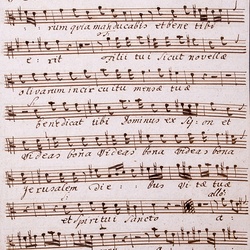 rum quia manducabis et bene tibi
e: rit filii tui sicut novellæ
olivarum in circuitu mensæ tuæ
benedicat tibi Dominus ex Syon et
videas bona videas bona videas bona
Jerusalem die: bus vitæ tuæ
et spiritui sancto a: